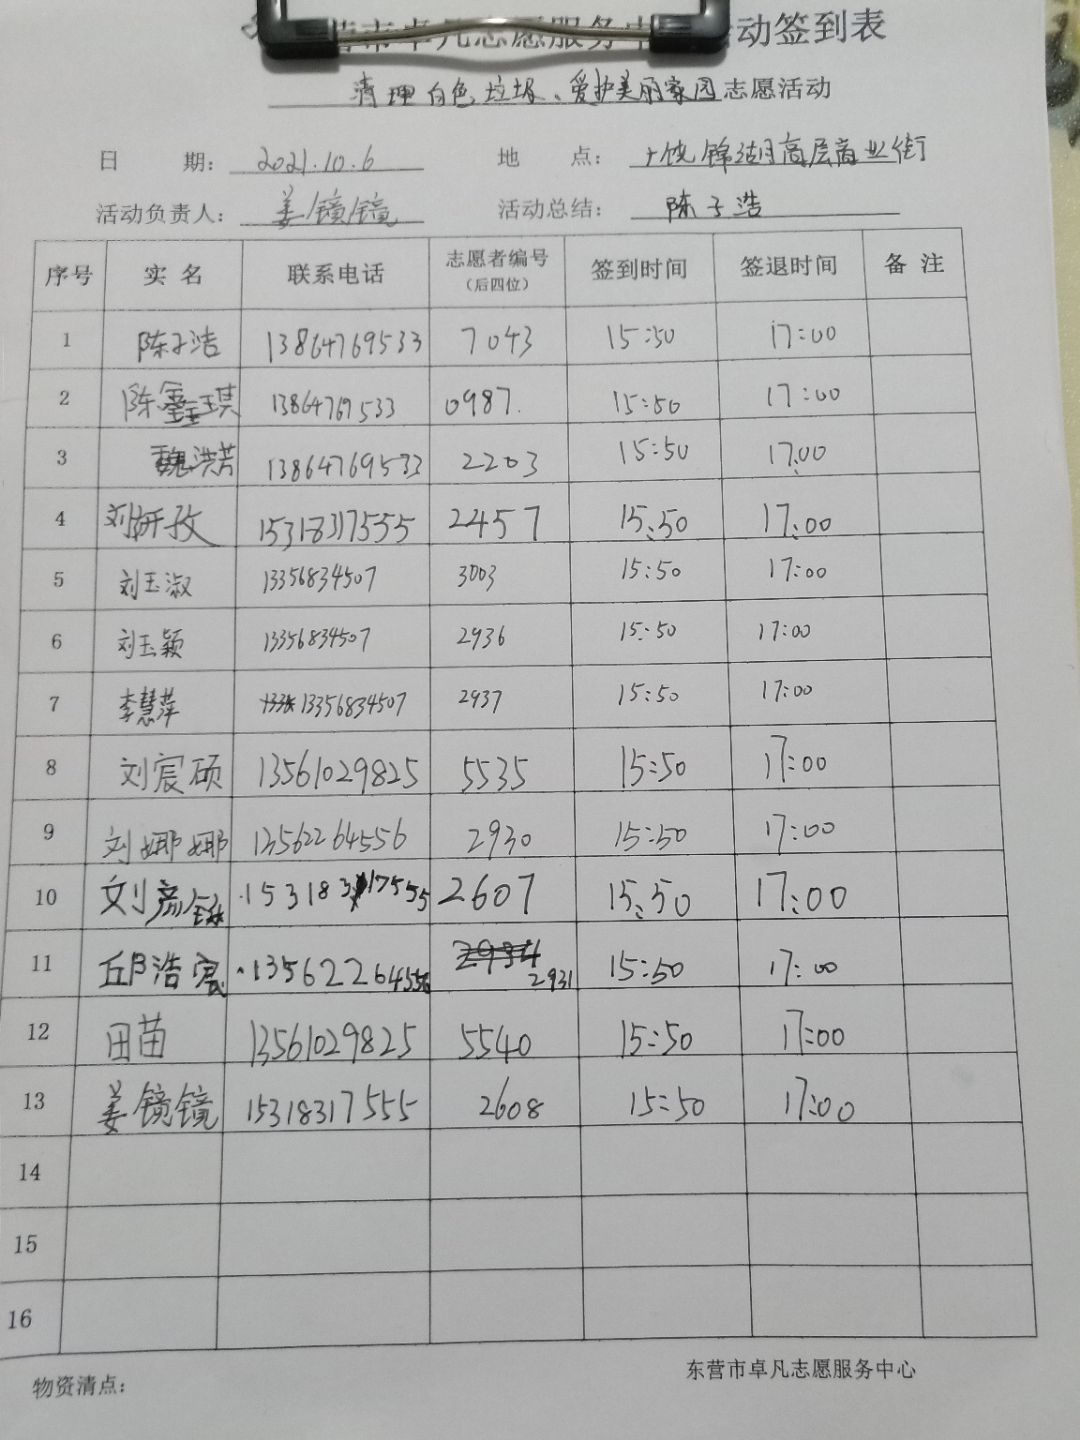 营市卓凡志愿服务中 动签到表
清理白色垃圾、爱护美丽家园志愿活动
日 期: 2021.10.6 地 点: 广饶锦湖高层商业街
活动负责人: 姜镜镜 活动总结: 陈子浩
序号 实 名 联系电话 志愿者编号 (后四位) 签到时间 签退时间 备 注
1 陈子浩 13864769533 7043 15:50 17:00
2 陈鑫琪 13864769533 0987. 15:50 17:00
3 魏洪芳 13864769533 2203 15:50 17:00
4 刘妍孜 15318317555 2457 15:50 17:00
5 刘玉淑 13356834507 3003 15:50 17:00
6 刘玉颖 13356834507 2936 15:50 17:00
7 李慧萍 13356834507 2937 15:50 17:00
8 刘宸硕 13561029825 5535 15:50 17:00
9 刘娜娜 13562264556 2930 15:50 17:00
10 刘 15318317555 2607 15:50 17:00
11 邱浩宸 13562264556 2931 15:50 17:00
12 田苗 13561029825 5540 15:50 17:00
13 姜镜镜 15318317555 2608 15:50 17:00
14
15
16
物资清点: 东营市卓凡志愿服务中心